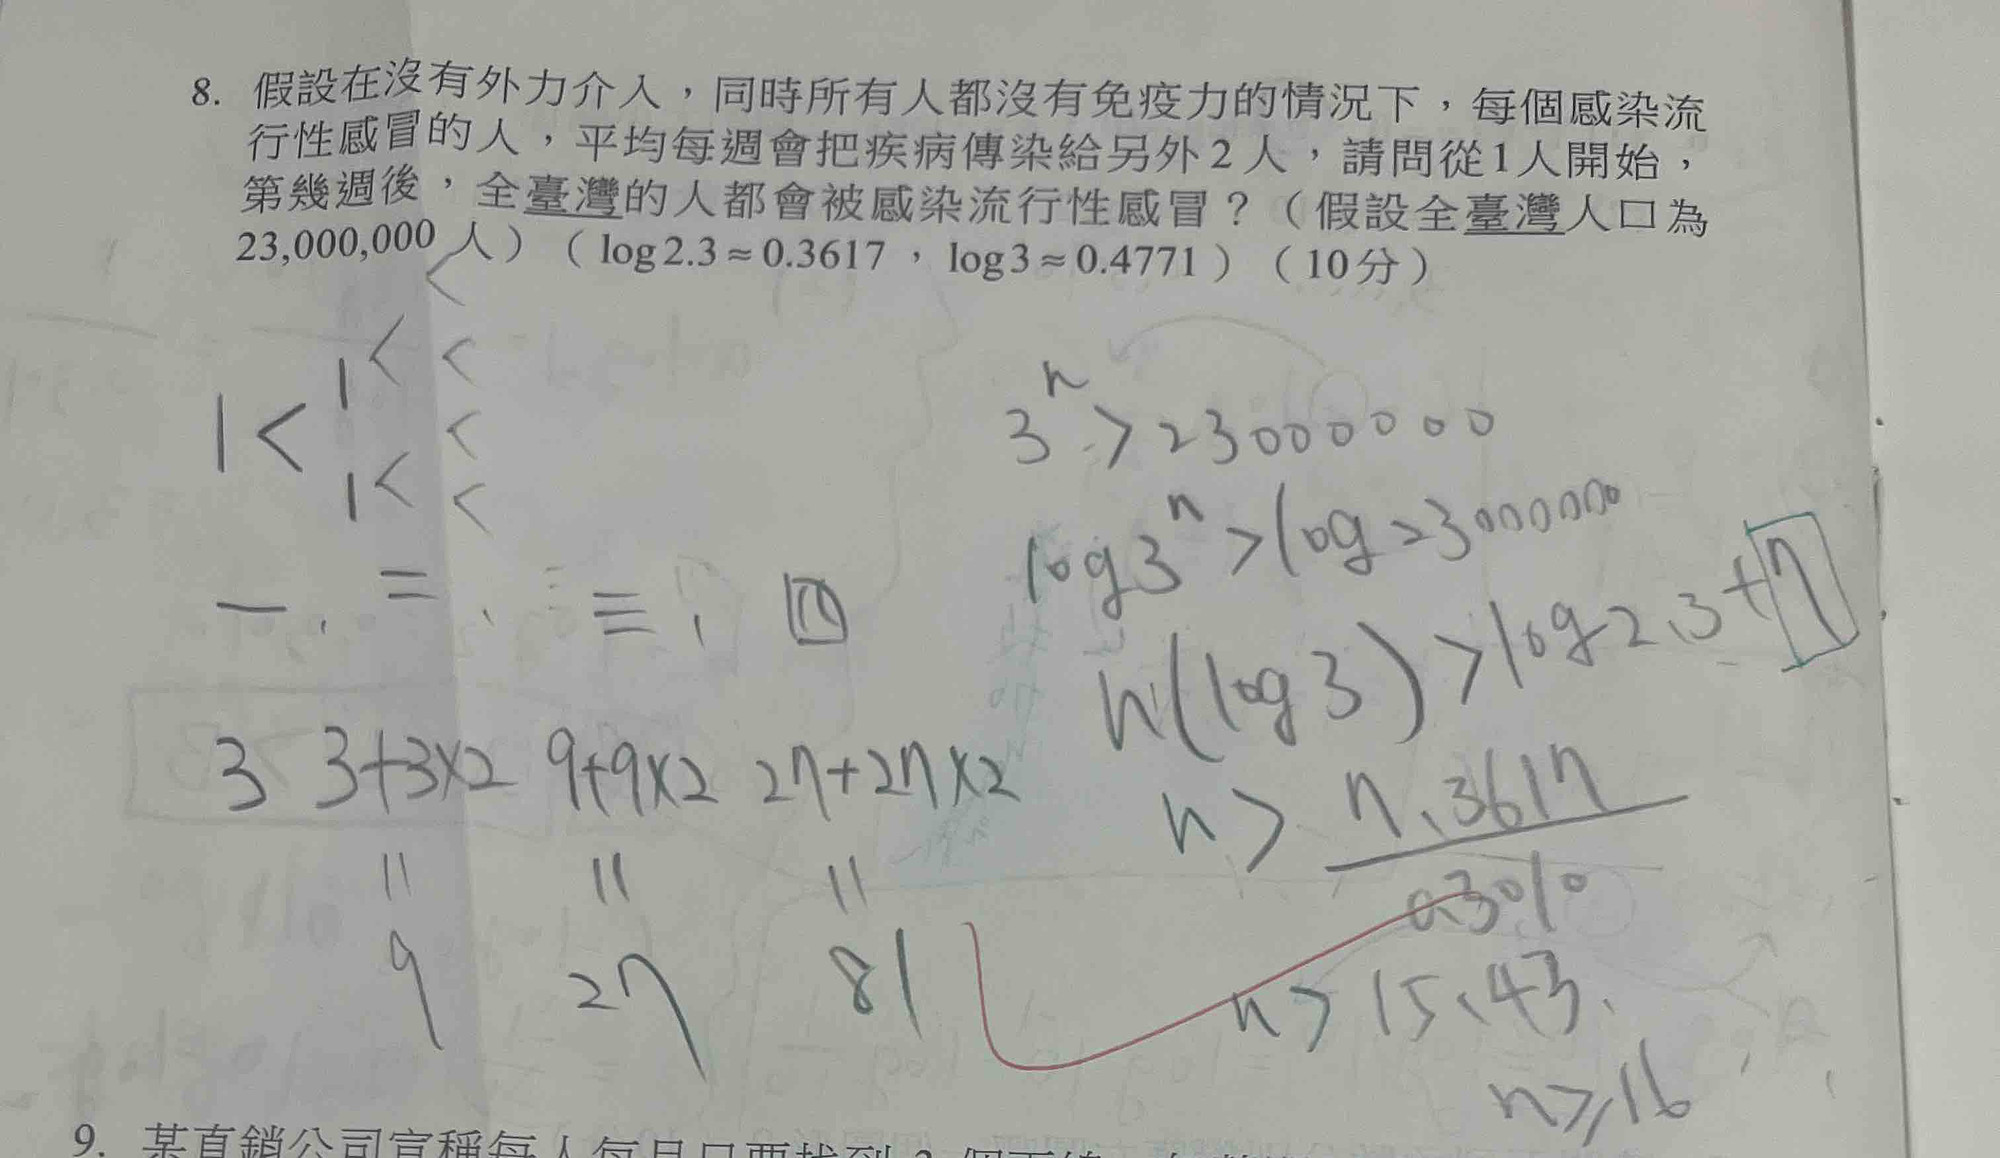 8. 假設在沒有外力介入，同時所有人都沒有免疫力的情況下，每個感染流
行性感冒的人，平均每週會把疾病傳染給另外2人，請問從1人開始，
第幾週後，全臺灣的人都會被感染流行性感冒？（假設全臺灣人口為
23,000,000人）（log2.3≈0.3617，log3≈0.4771）（10分）
1 < 1 < <
<
1 < <
<
一、二、三、四
3 3+3×2 9+9×2 27+27×2
= = =
9 27 81
3^n > 23000000
log3^n > log23000000
n(log3) > log2.3+7
n > 7.3617
n > 15.43.
n ≥ 16
9. 某直銷公司宣稱每人每月只要找到